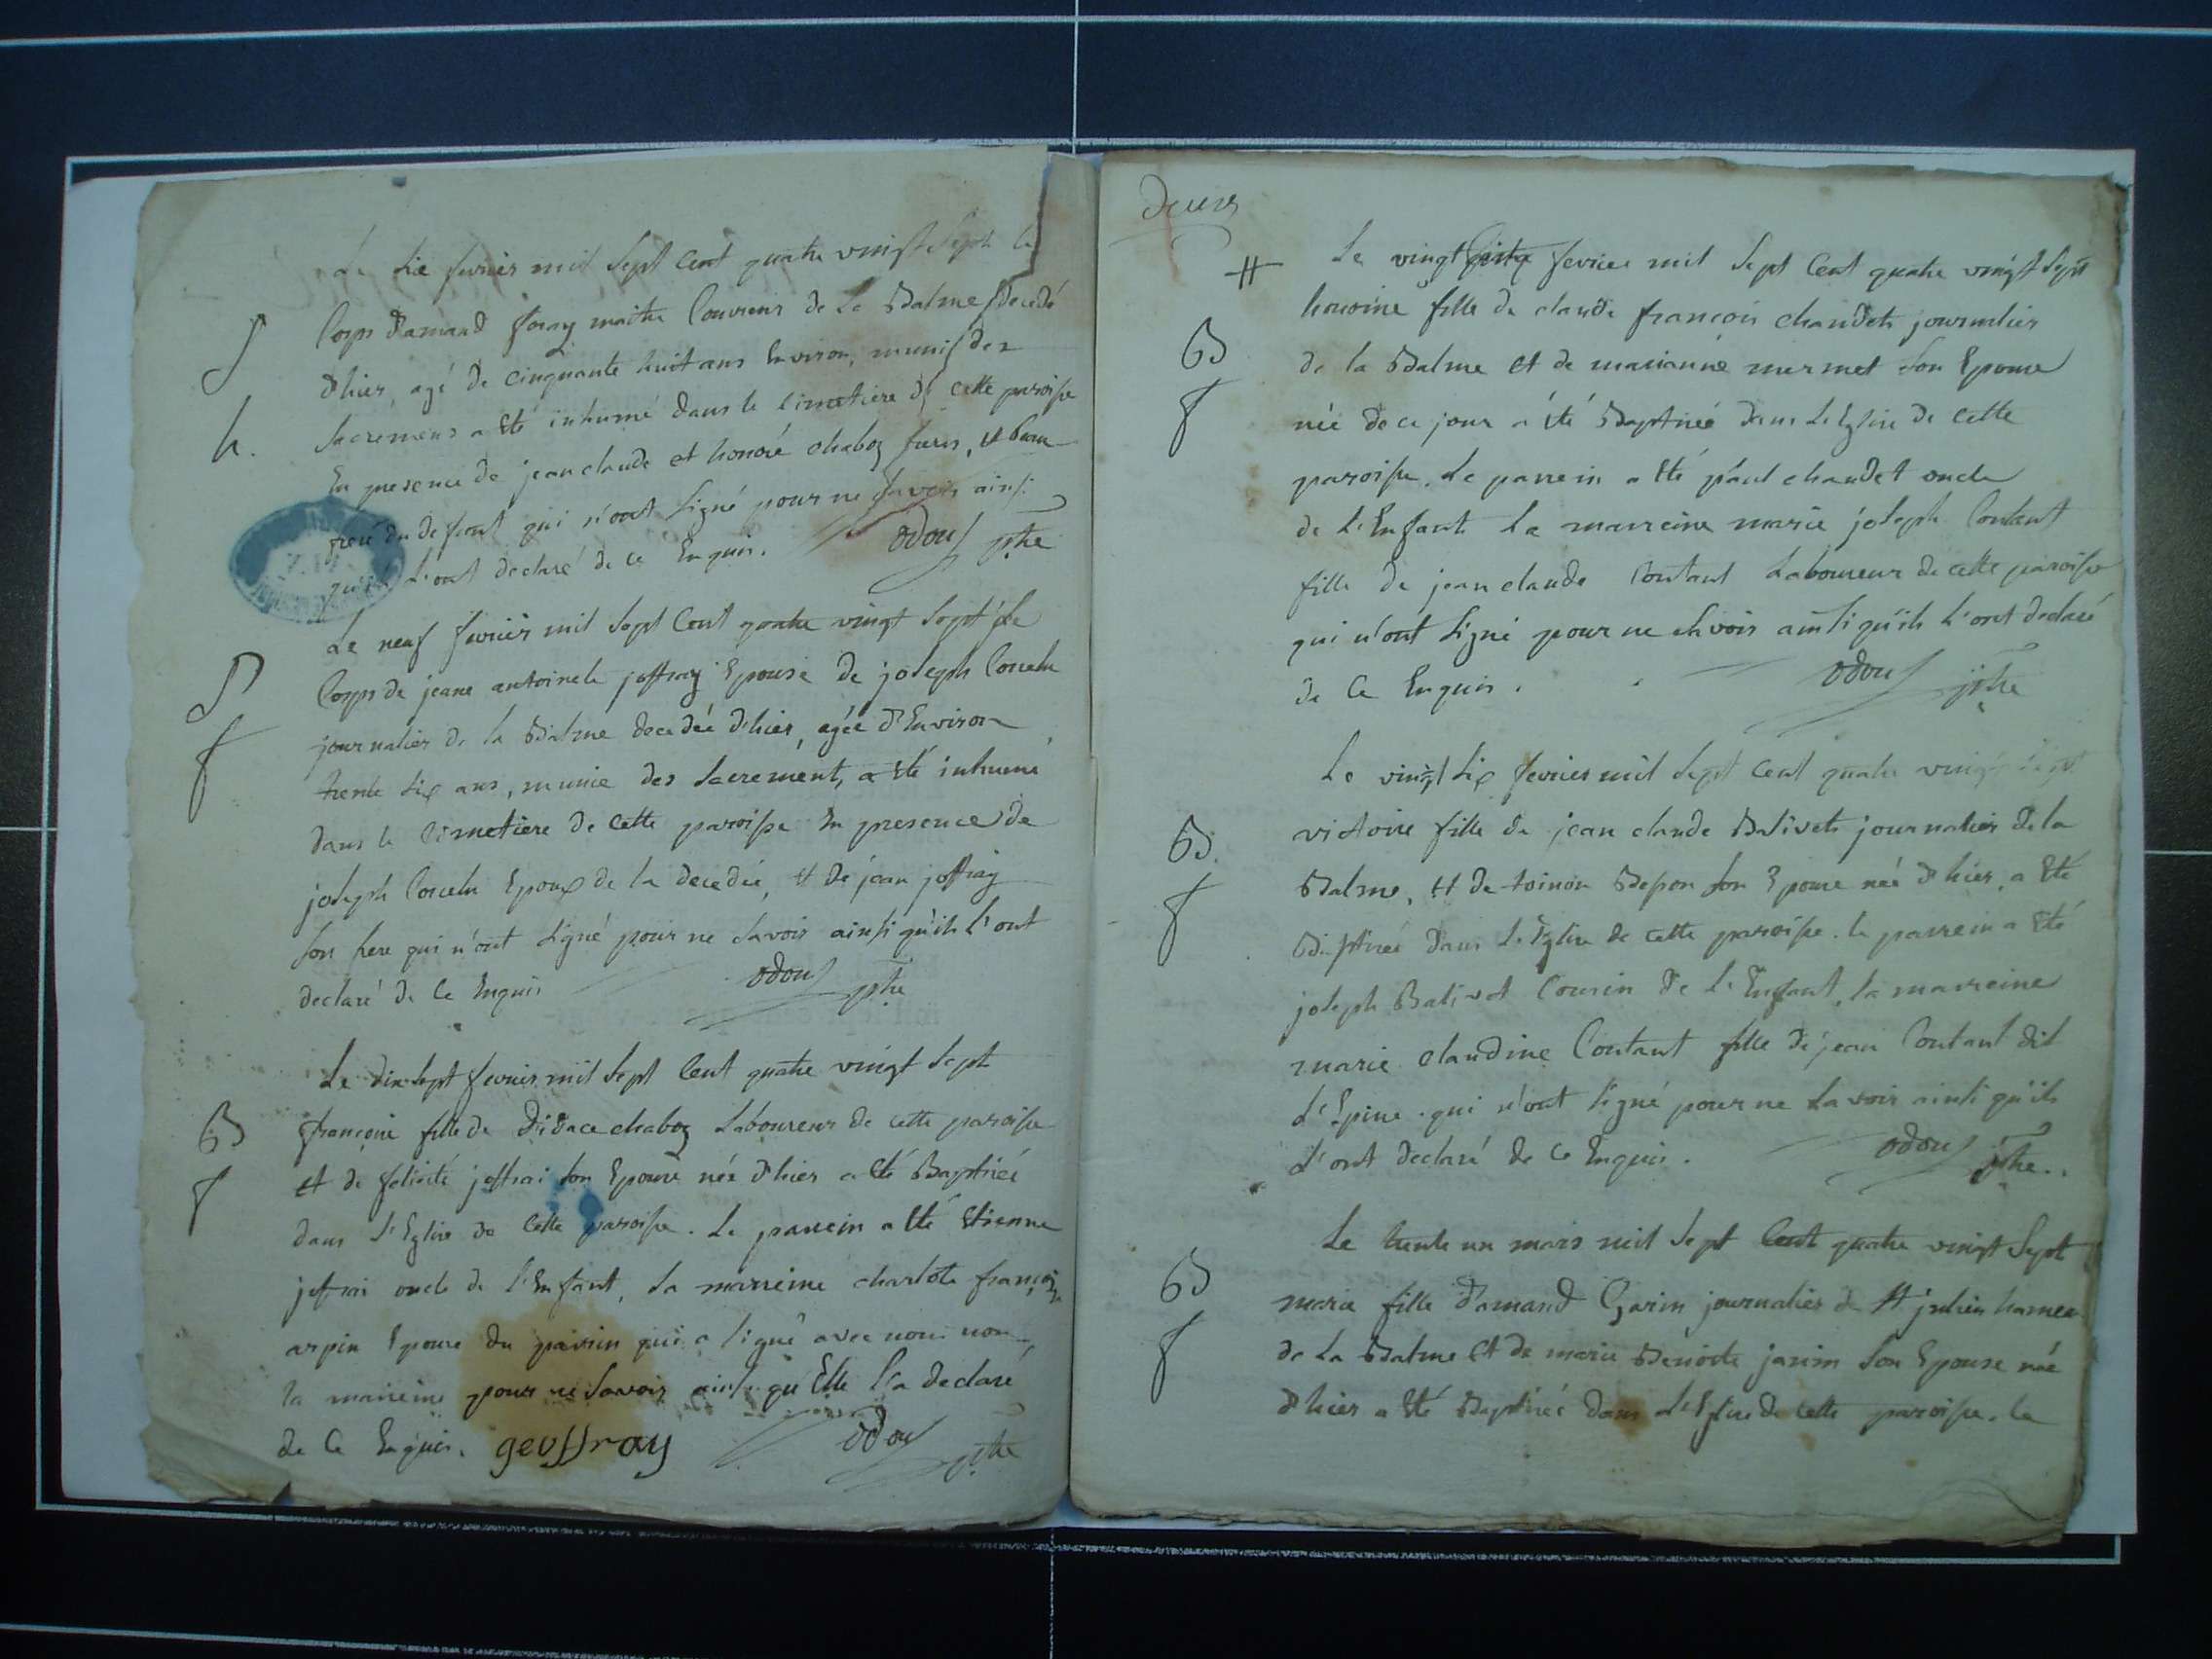 Le six fevrier mil sept cent quatre vingt sept le
Corps d'amand foray maitre Couvreur de La Balme decedé
d'hier, agé de cinquante huit ans Environ, muni des
S
h.
sacremens a eté inhumé dans le cimetiere de cette paroisse
En presence de jean claude et honoré chaboz freres, et beau
frere du defunt qui n'ont signé pour ne savoir ainsi
qu'ils L'ont declaré de ce Enquis. odouf ptre
Le neuf fevrier mil sept cent quatre vingt sept le
S
f
Corps de jeane antoinete joffray Epouse de joseph Corcelu
journalier de la Balme decedée d'hier, agée d'Environ
trente six ans, munie des sacrement, a eté inhumé
dans le cimetiere de cette paroisse En presence de
joseph Corcelu Epoux de la decedée, et de jean joffray
son pere qui n'ont signé pour ne savoir ainsi qu'ils l'ont
declaré de Ce Enquis odouf ptre
Le dix sept fevrier mil sept Cent quatre vingt sept
B
f
françoise fille de Didace chaboz Laboureur de cette paroisse
et de felicité joffrai son Epouse née d'hier a eté Baptisée
dans l'Eglise de Cette paroisse. Le parrein a eté Etienne
joffrai oncle de l'Enfant, la marreine charlote françoise
arpin Epouse du parrein qui a signé avec nous non
la marreine pour ne savoir ainsi qu'Elle l'a declaré
de Ce Enquis. geoffray odouf ptre
deux
#
Le vingt fevrier mil sept Cent quatre vingt sept
B
f
honorine fille de claude françois chaudet journalier
de la Balme et de marianne mermet son Epouse
née de ce jour a été Baptisée dans L'Eglise de cette
paroisse. Le parrein a eté paul chaudet oncle
de L'Enfant La marreine marie joseph Contant
fille de jean claude Contant Laboureur de cette paroisse
qui n'ont signé pour ne savoir ainsi qu'ils l'ont declaré
de Ce Enquis. odouf ptre
Le vingt six fevrier mil sept cent quatre vingt sept
B.
f
victoire fille de jean claude Balivet journalier de la
Balme, et de toinon Depon son Epouse née d'hier, a eté
Baptisée dans L'Eglise de cette paroisse. le parrein a Eté
joseph Balivet Cousin de L'Enfant, la marreine
marie claudine Contant fille de jean Contant dit
L'Epine. qui n'ont signé pour ne savoir ainsi qu'ils
L'ont declaré de Ce Enquis. odouf ptre.
Le trente un mars mil sept Cent quatre vingt sept
B
f
marie fille d'amand Garin journalier de St julien hameau
de La Balme Et de marie Benoite janin son Epouse née
d'hier a Eté Baptisée dans L'Eglise de cette paroisse. le